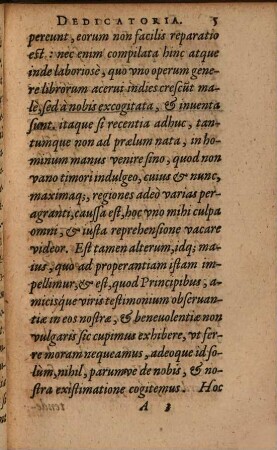 DEDICATORIA. 5
pereunt, eorum non facilis reparatio
est.: nec enim compilata hinc atque
inde laboriosè, quo vno operum gene
re librorum acerui indies crescũt ma
lè, sed à nobis excogitata, & inuenta
sunt. itaque si recentia adhuc, tan-
tumque non ad prælum nata, in ho-
minum manus venire sino, quod non
vano timori indulgeo, cuius & nunc,
maximaq; regiones adeò varias per-
agranti, caussa est, hoc vno mihi culpa
omni, & iusta reprehensione vacare
videor. Est tamen alterum, idq; ma-
ius, quo ad properantiam istam im-
pellimur, & est, quod Principibus, a-
micisque viris testimonium obseruan-
tiæ in eos nostræ, & beneuolentiæ non
vulgaris sic cupimus exhibere, vt fer-
re moram nequeamus, adeoque id so-
lùm, nihil, parumve de nobis, & no-
stra existimatione cogitemus. Hoc
A 3